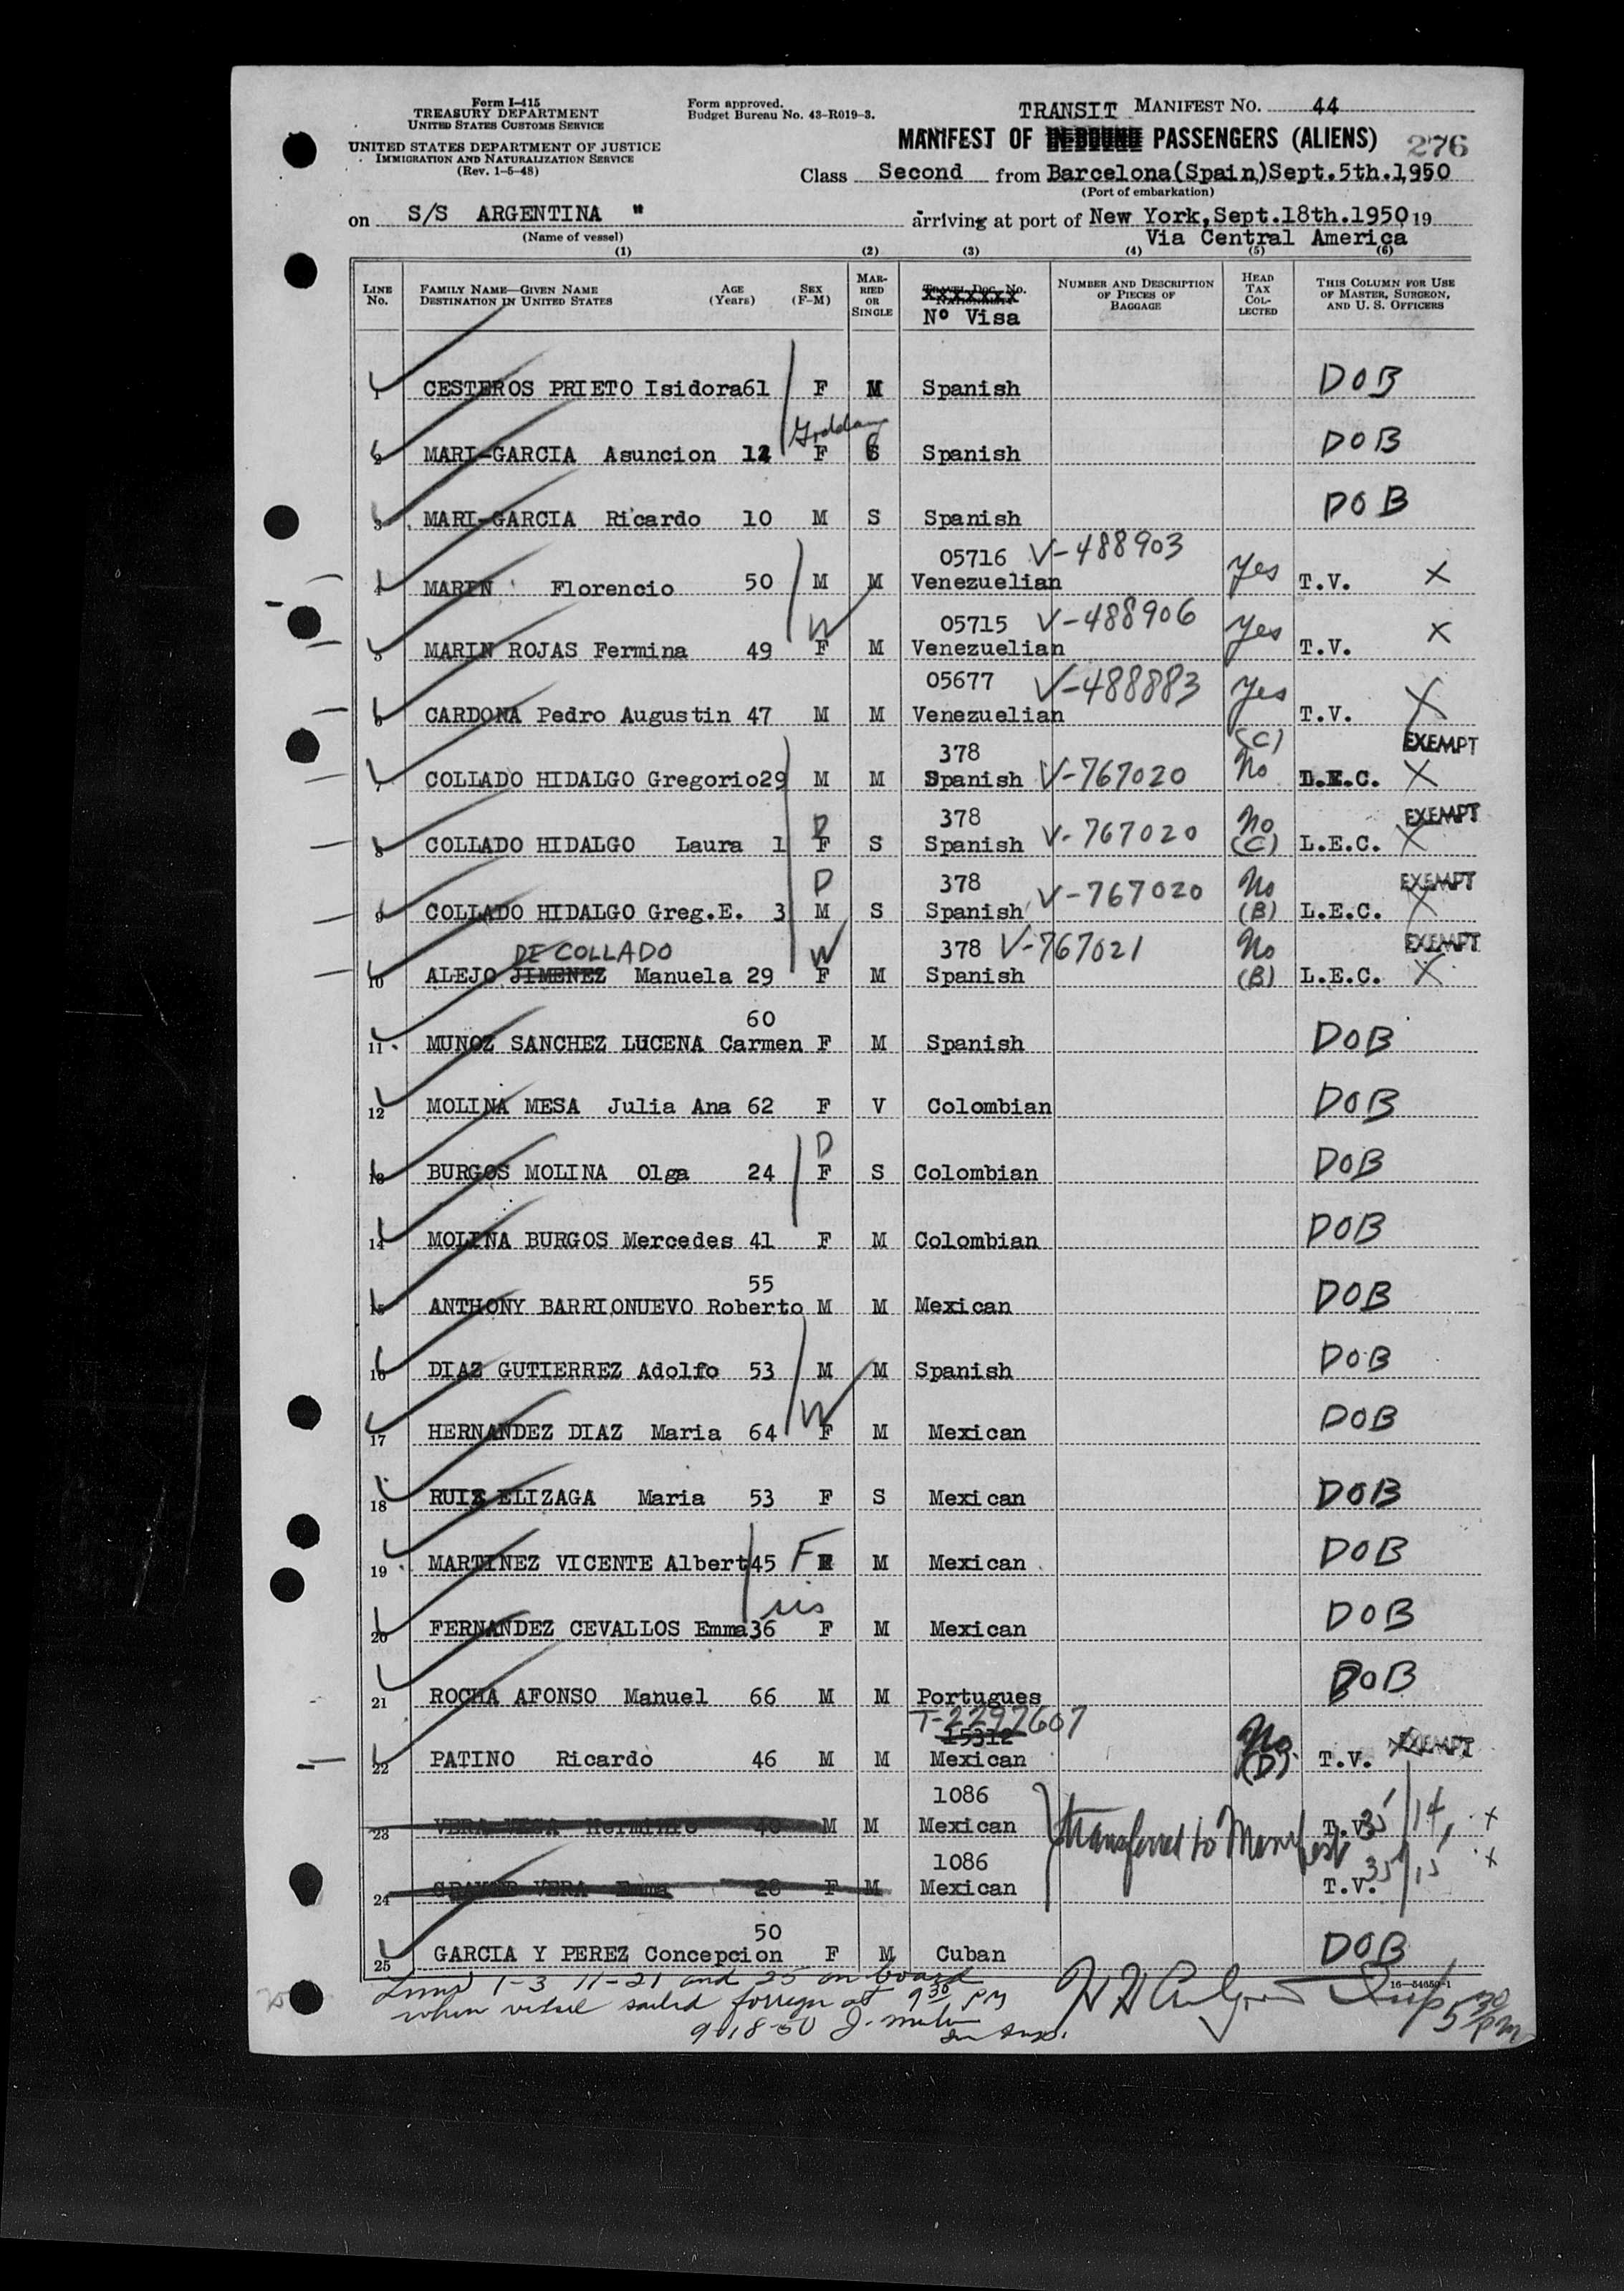 Form I-415
TREASURY DEPARTMENT
UNITED STATES CUSTOMS SERVICE
UNITED STATES DEPARTMENT OF JUSTICE
IMMIGRATION AND NATURALIZATION SERVICE
(Rev. 1-5-48)
Form approved.
Budget Bureau No. 43-R019-3.
TRANSIT MANIFEST NO. 44
MANIFEST OF IN-BOUND PASSENGERS (ALIENS) 276
Class Second from Barcelona(Spain)Sept.5th.1950
(Port of embarkation)
on S/S ARGENTINA " arriving at port of New York,Sept.18th.1950 19
(Name of vessel) Via Central America
(1) (2) (3) (4) (5) (6)
LINE NO. FAMILY NAME—GIVEN NAME DESTINATION IN UNITED STATES AGE (Years) SEX (F-M) MARRIED OR SINGLE Nº Visa NUMBER AND DESCRIPTION OF PIECES OF BAGGAGE HEAD TAX COLLECTED THIS COLUMN FOR USE OF MASTER, SURGEON, AND U. S. OFFICERS
1 CESTEROS PRIETO Isidora 61 F M Spanish DOB
2 MARI-GARCIA Asuncion 12 F S Spanish DOB
3 MARI-GARCIA Ricardo 10 M S Spanish DOB
05716 V-488903
4 MARIN Florencio 50 M M Venezuelian Yes T.V. X
05715 V-488906
5 MARIN ROJAS Fermina 49 W F M Venezuelian Yes T.V. X
05677 V-488883
6 CARDONA Pedro Augustin 47 M M Venezuelian Yes T.V. X
378 (C) EXEMPT
7 COLLADO HIDALGO Gregorio 29 M M Spanish V-767020 No L.E.C. X
378 EXEMPT
8 COLLADO HIDALGO Laura 1 D F S Spanish V-767020 No (C) L.E.C. X
378 EXEMPT
9 COLLADO HIDALGO Greg.E. 3 D M S Spanish V-767020 No (B) L.E.C. X
DE COLLADO 378 V-767021 EXEMPT
10 ALEJO JIMENEZ Manuela 29 W F M Spanish No (B) L.E.C. X
60
11 MUNOZ SANCHEZ LUCENA Carmen F M Spanish DOB
12 MOLINA MESA Julia Ana 62 F V Colombian DOB
13 BURGOS MOLINA Olga 24 D F S Colombian DOB
14 MOLINA BURGOS Mercedes 41 F M Colombian DOB
55
15 ANTHONY BARRIONUEVO Roberto M M Mexican DOB
16 DIAZ GUTIERREZ Adolfo 53 M M Spanish DOB
17 HERNANDEZ DIAZ Maria 64 W F M Mexican DOB
18 RUIZ ELIZAGA Maria 53 F S Mexican DOB
19 MARTINEZ VICENTE Albert 45 F M Mexican DOB
20 FERNANDEZ CEVALLOS Emma 36 sis F M Mexican DOB
21 ROCHA AFONSO Manuel 66 M M Portugues DOB
T-2292607
15312
22 PATINO Ricardo 46 M M Mexican No (D) T.V. EXEMPT
1086
23 VERA VEGA Herminio 40 M M Mexican transferred to Manifest T.V. 35/14, X
1086
24 VERA Emma 28 F M Mexican T.V. 35/15 X
50
25 GARCIA Y PEREZ Concepcion F M Cuban DOB
16—54650-1
Lines 1-3 11-21 and 25 on board
when vessel sailed foreign at 9 30 PM
9-18-50
Insp.
5 30 PM